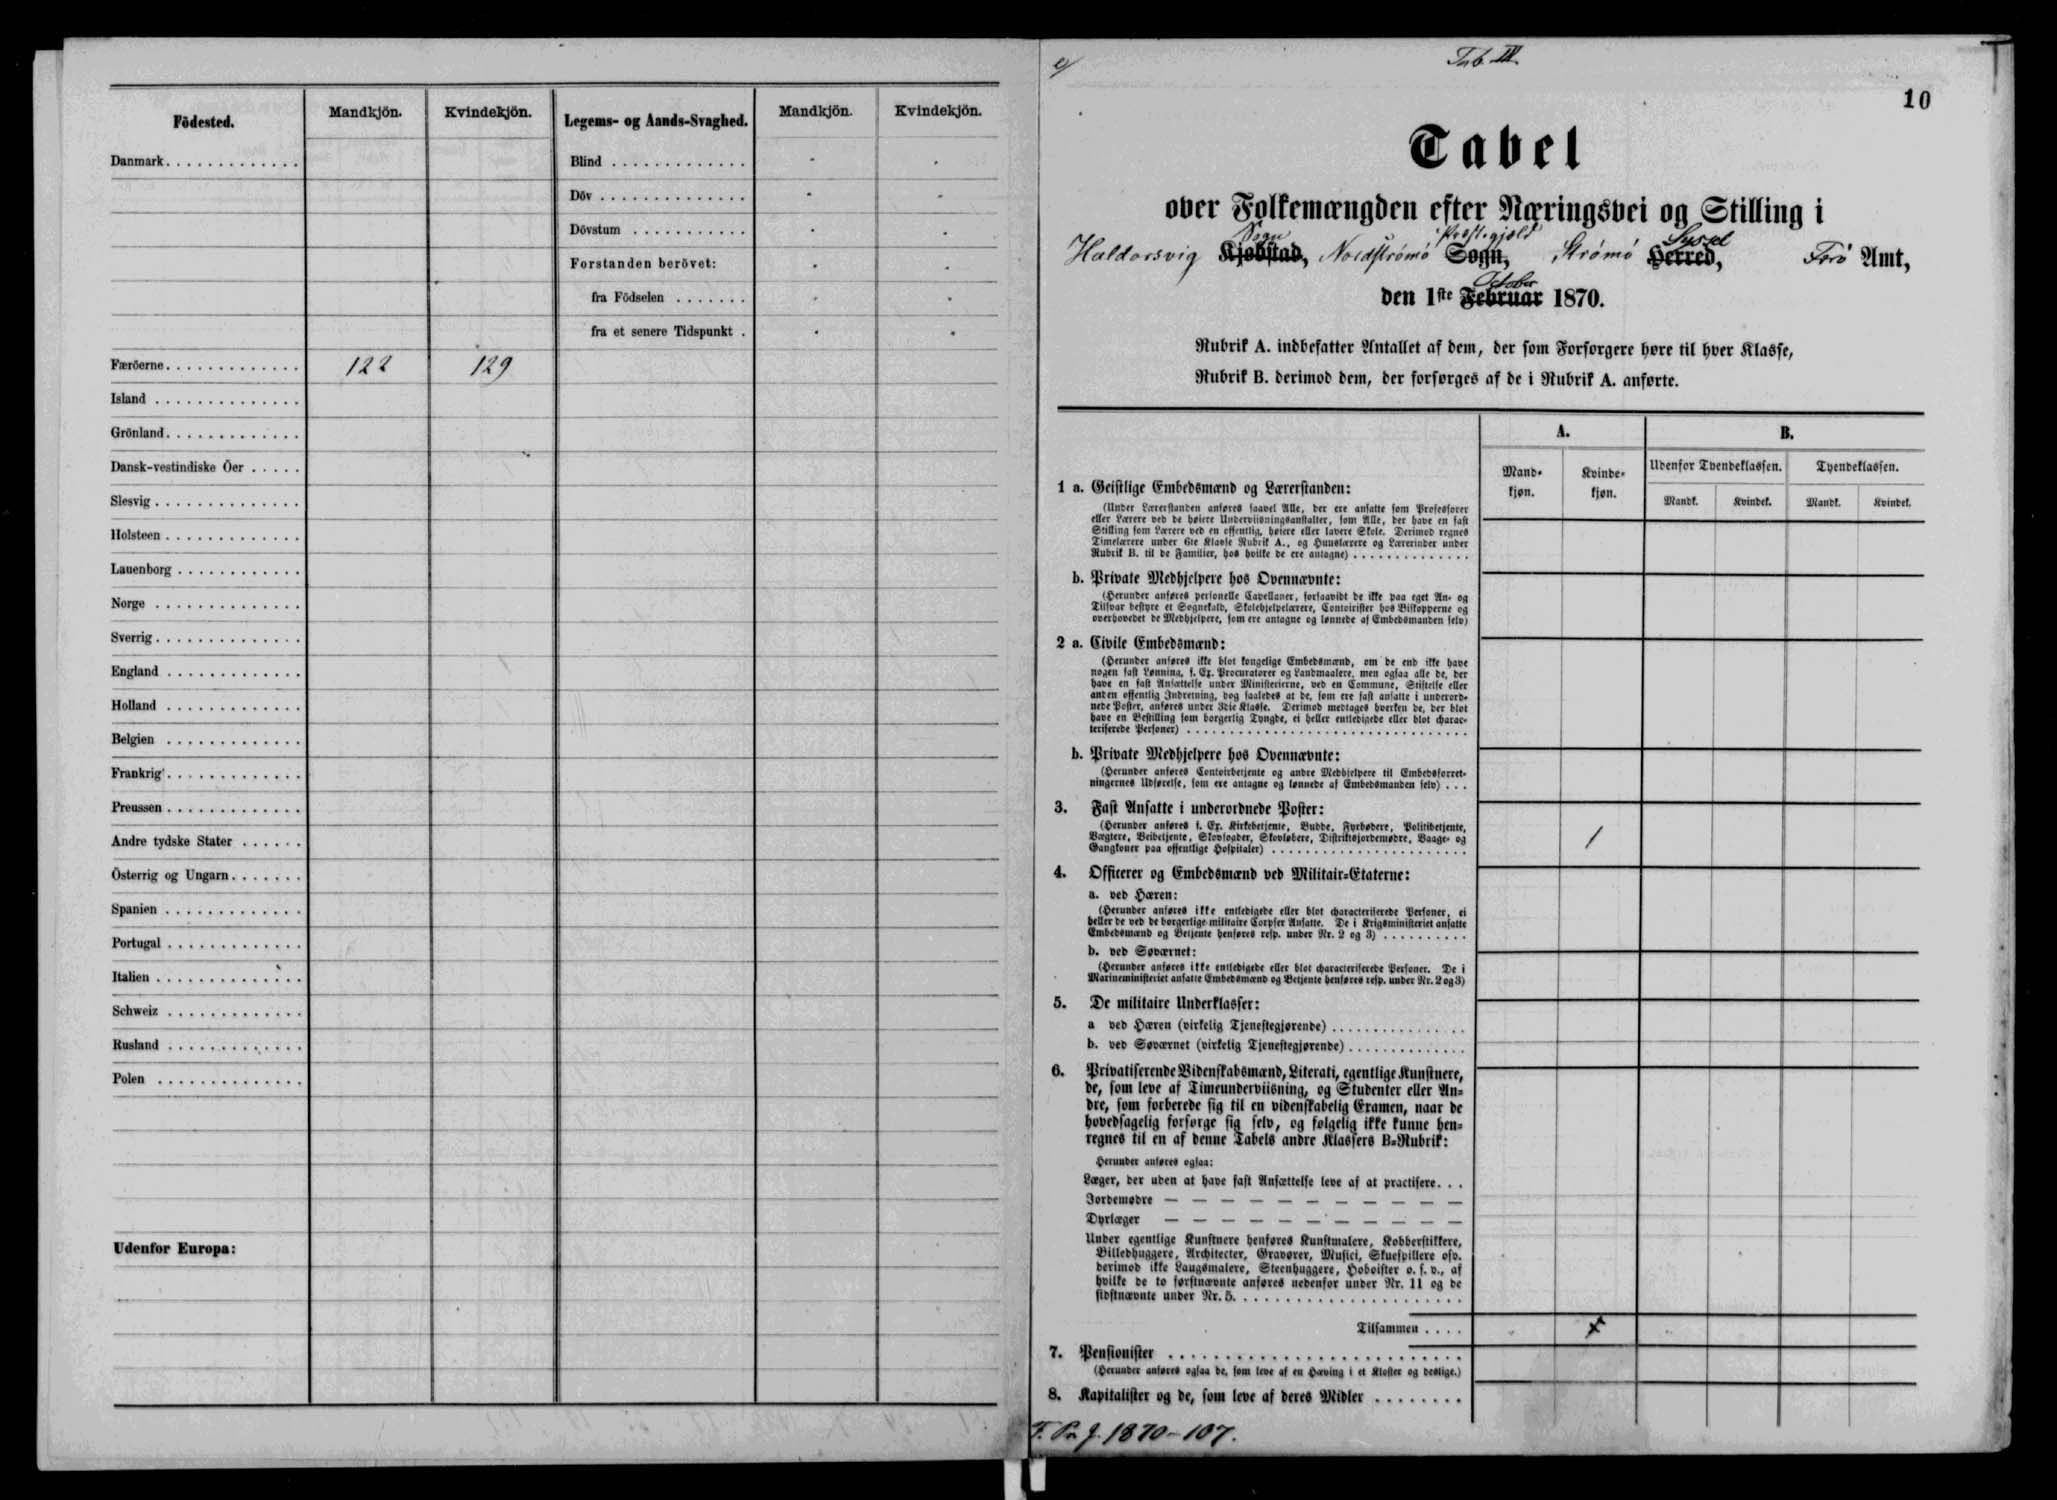 Födested. Mandkjön. Kvindekjön. Legems- og Aands-Svaghed. Mandkjön. Kvindekjön.
Danmark
Blind
Döv
Dövstum
Forstanden berövet:
fra Födselen
fra et senere Tidspunkt
Færöerne 122 129
Island
Grönland
Dansk-vestindiske Öer
Slesvig
Holsteen
Lauenborg
Norge
Sverrig
England
Holland
Belgien
Frankrig
Preussen
Andre tydske Stater
Österrig og Ungarn
Spanien
Portugal
Italien
Schweiz
Rusland
Polen
Udenfor Europa:
Tab III.
10
Tabel
over Folkemængden efter Næringsvei og Stilling i
Sogn Præst.gjeld Syssel
Haldorsvig Kjøbstad, Nordstrømø Sogn, Strømø Herred, Færø Amt,
October
den 1ste Februar 1870.
Rubrik A. indbefatter Antallet af dem, der som Forsørgere høre til hver Klasse,
Rubrik B. derimod dem, der forsørges af de i Rubrik A. anførte.
A. B.
Mand-
kjøn.
Kvinde-
kjøn.
Udenfor Tyendeklassen. Tyendeklassen.
Mandk. Kvindek. Mandk. Kvindek.
1 a. Geistlige Embedsmænd og Lærerstanden:
(Under Lærerstanden anføres saavel Alle, der ere ansatte som Professorer
eller Lærere ved de høiere Underviisningsanstalter, som Alle, der have en fast
Stilling som Lærere ved en offentlig, høiere eller lavere Skole. Derimod regnes
Timelærere under 6te Klasse Rubrik A., og Huuslærere og Lærerinder under
Rubrik B. til de Familier, hos hvilke de ere antagne)
b. Private Medhjelpere hos Ovennævnte:
(Herunder anføres personelle Capellaner, forsaavidt de ikke paa eget An- og
Tilsvar bestyre et Sognekald, Skolehjelpelærere, Contoirister hos Biskopperne og
overhovedet de Medhjelpere, som ere antagne og lønnede af Embedsmanden selv)
2 a. Civile Embedsmænd:
(Herunder anføres ikke blot kongelige Embedsmænd, om de end ikke have
nogen fast Lønning, f. Ex. Procuratorer og Landmaalere, men ogsaa alle de, der
have en fast Ansættelse under Ministerierne, ved en Commune, Stiftelse eller
anden offentlig Indretning, dog saaledes at de, som ere fast ansatte i underord-
nede Poster, anføres under 3die Klasse. Derimod medtages hverken de, der blot
have en Bestilling som borgerlig Tyngde, ei heller entledigede eller blot charac-
teriserede Personer)
b. Private Medhjelpere hos Ovennævnte:
(Herunder anføres Contoirbetjente og andre Medhjelpere til Embedsforret-
ningernes Udførelse, som ere antagne og lønnede af Embedsmanden selv)
3. Fast Ansatte i underordnede Poster:
(Herunder anføres f. Ex. Kirkebetjente, Budde, Fyrbødere, Politibetjente,
Vægtere, Veibetjente, Skovfogder, Skovløbere, Distriktsjordemødre, Vaage- og
Gangkoner paa offentlige Hospitaler) 1
4. Officerer og Embedsmænd ved Militair-Etaterne:
a. ved Hæren:
(Herunder anføres ikke entledigede eller blot characteriserede Personer, ei
heller de ved de borgerlige militaire Corpser Ansatte. De i Krigsministeriet ansatte
Embedsmænd og Betjente henføres resp. under Nr. 2 og 3)
b. ved Søværnet:
(Herunder anføres ikke entledigede eller blot characteriserede Personer. De i
Marineministeriet ansatte Embedsmænd og Betjente henføres resp. under Nr. 2 og 3)
5. De militaire Underklasser:
a ved Hæren (virkelig Tjenestegjørende)
b. ved Søværnet (virkelig Tjenestegjørende)
6. Privatiserende Videnskabsmænd, Literati, egentlige Kunstnere,
de, som leve af Timeunderviisning, og Studenter eller An-
dre, som forberede sig til en videnskabelig Examen, naar de
hovedsagelig forsørge sig selv, og følgelig ikke kunne hen-
regnes til en af denne Tabels andre Klassers B-Rubrik:
Herunder anføres ogsaa:
Læger, der uden at have fast Ansættelse leve af at practisere
Jordemødre — — — — — — — — — — —
Dyrlæger — — — — — — — — — — —
Under egentlige Kunstnere henføres Kunstmalere, Kobberstikkere,
Billedhuggere, Architecter, Gravører, Musici, Skuespillere osv.
derimod ikke Laugsmalere, Steenhuggere, Hoboister o. s. v., af
hvilke de to førstnævnte anføres nedenfor under Nr. 11 og de
sidstnævnte under Nr. 5.
Tilsammen
7. Pensionister
(Herunder anføres ogsaa de, som leve af en Hæving i et Kloster og deslige.)
8. Kapitalister og de, som leve af deres Midler
F. Pr. J. 1870-107.